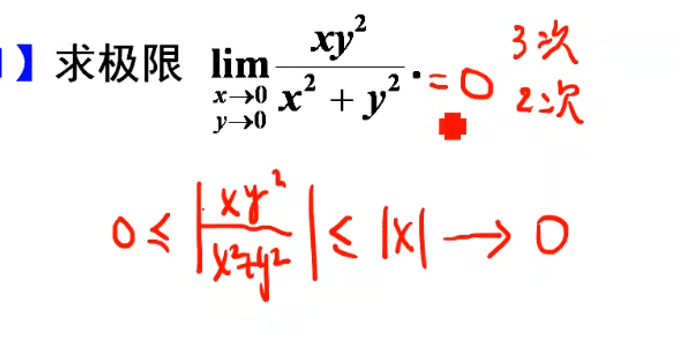 】求极限 lim x→0 y→0 xy²/(x² + y²). = 0 3次 2次
0 ≤ |xy²/(x²+y²)| ≤ |x| → 0